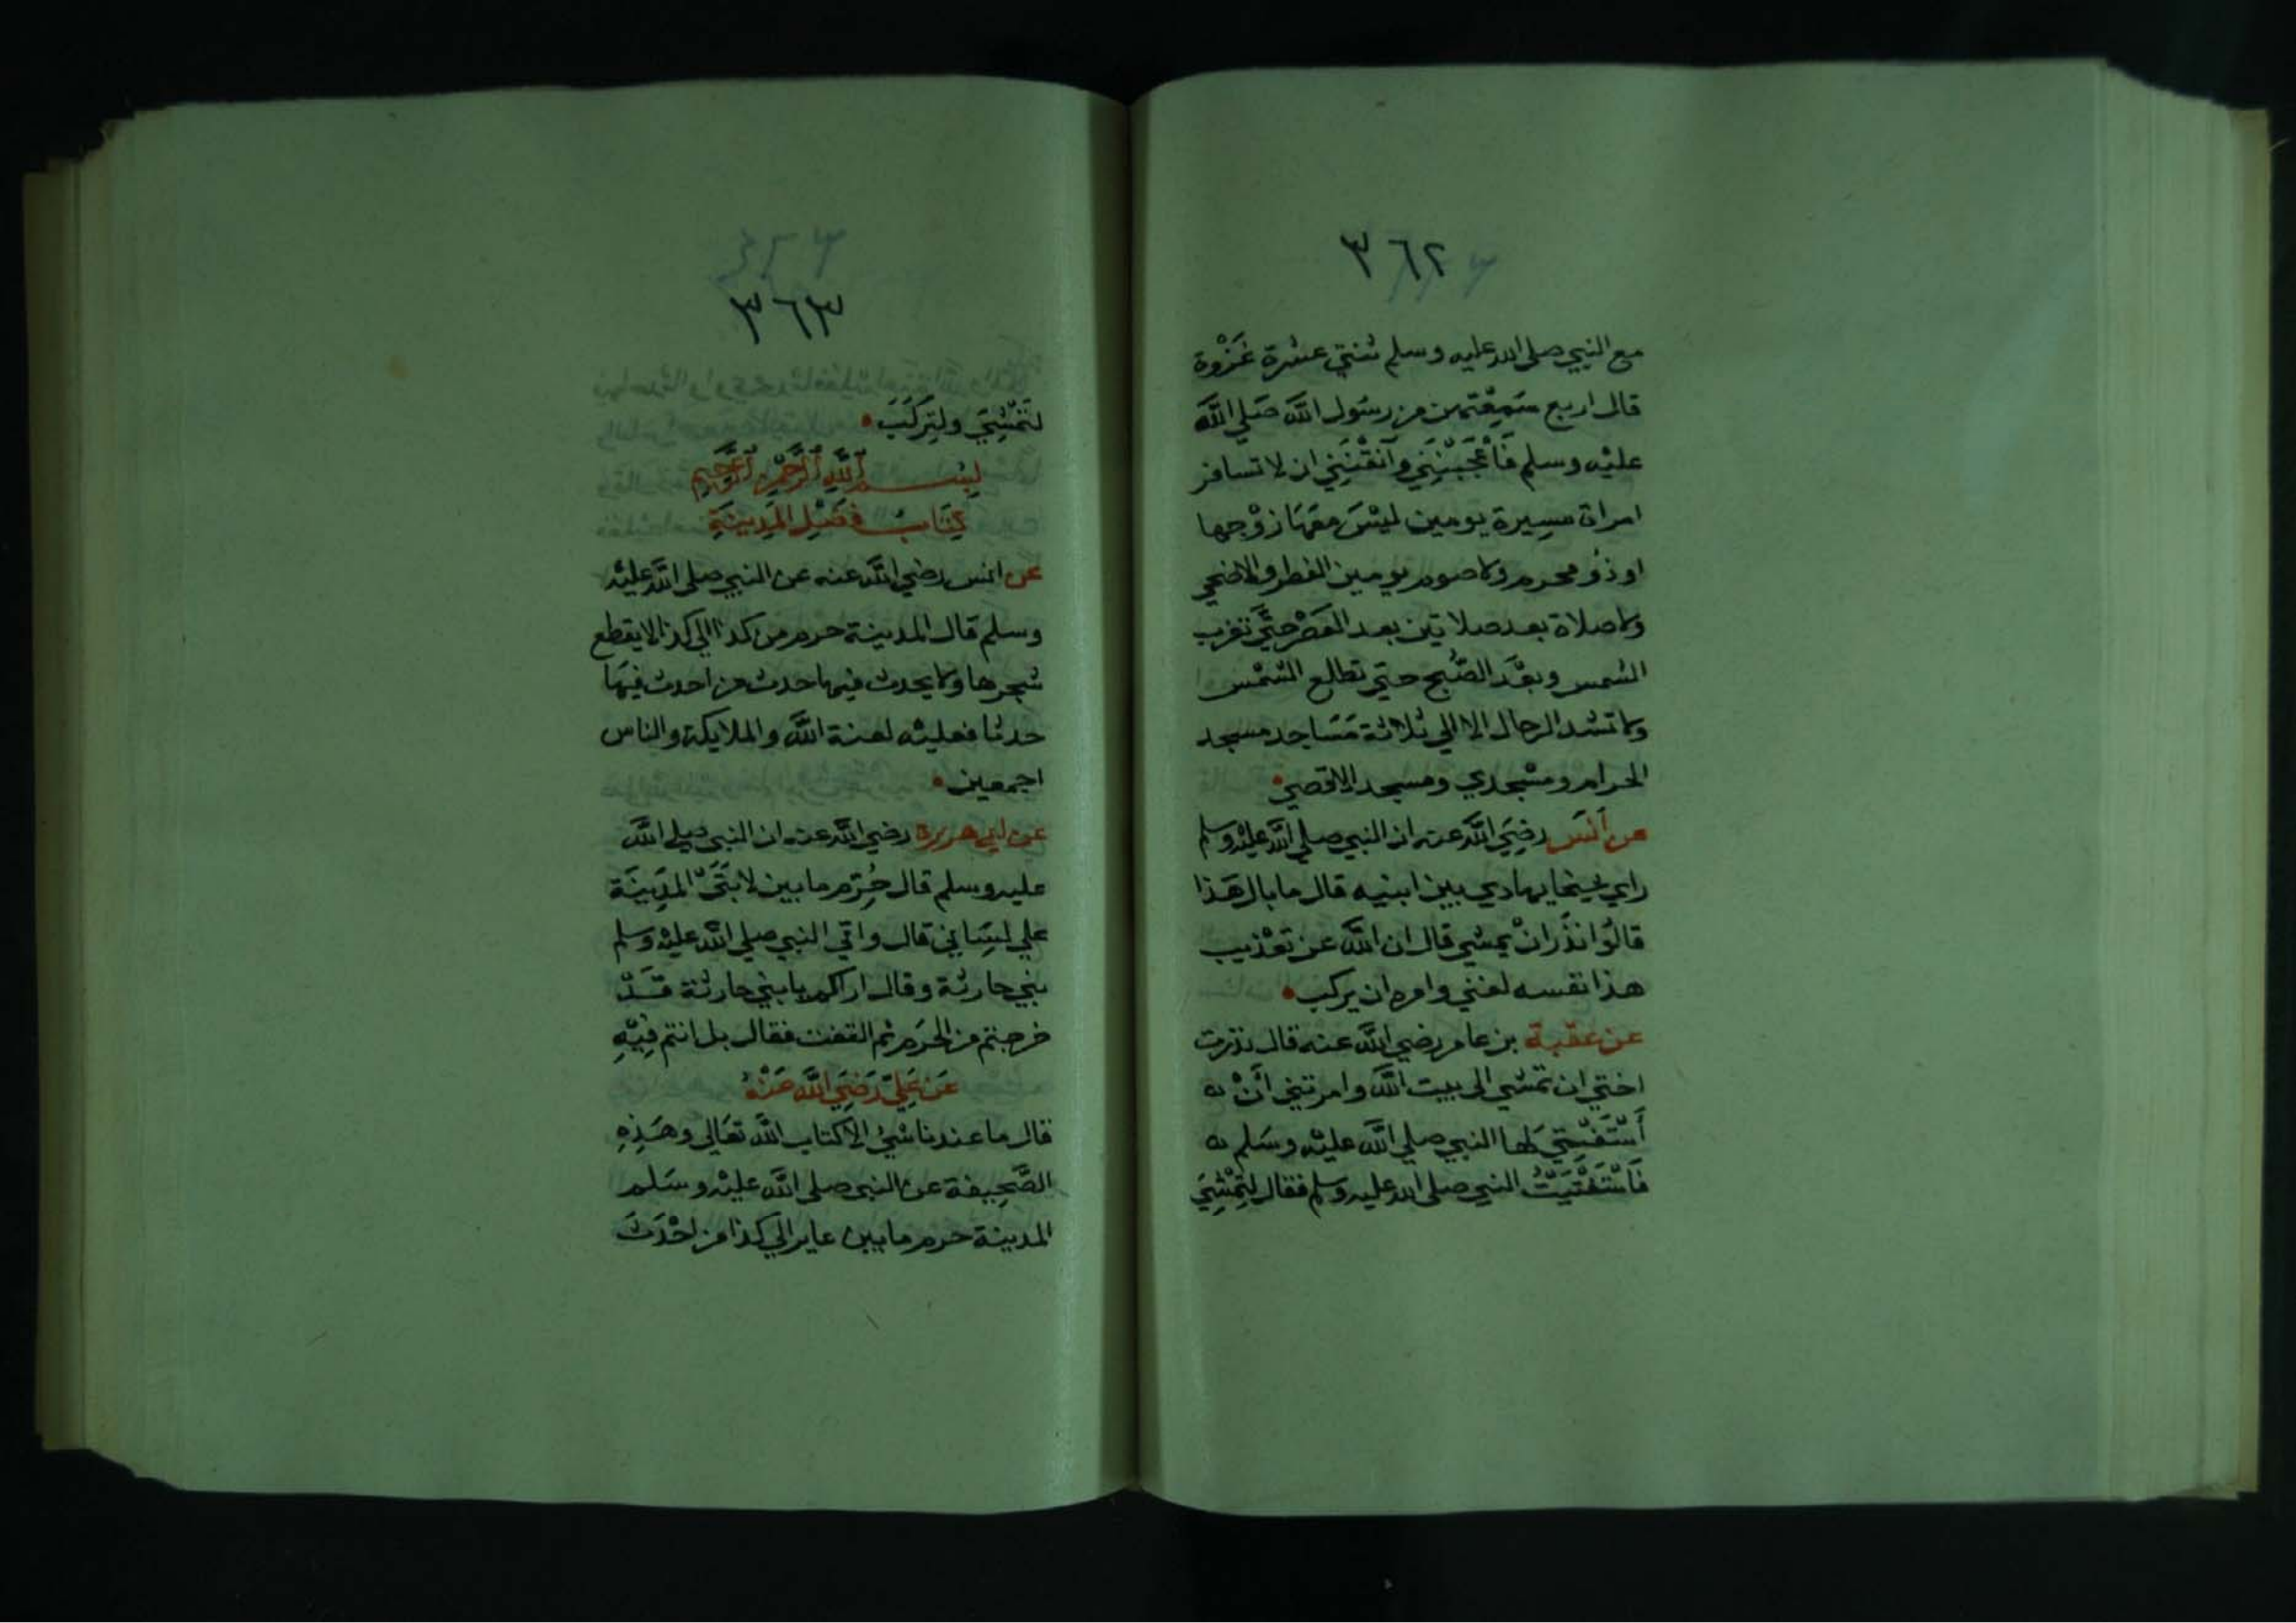 ٣٦٢
مع النبي صلى الله عليه وسلم ثنتي عشرة غَزْوة
قال اربع سَمِعْتهن من رسَول اللَّه صَلي اللَّه
عليْه وسلم فَأعْجَبْنَنِي وآنقْنَنِي ان لا تسافر
امراة مسِيرة يومين ليْسَ معَهَا زوْجها
او ذُو محرم ولا صوم يومين الفطر والاضحي
ولا صلاة بعد صلاتين بعد العَصْر حتَّي تغرب
الشمس وبعْدَ الصُّبح حتي تطلع الشمْس
ولا تشد الرحال الا الي ثلاثة مَسَاجد مسجد
الحرام ومسْجدي ومسجد الاقصي
عن أنَس رضِيَ اللَّه عنه ان النبي صلي اللَّه عليْه وسلم
راي شيخا يهادي بين ابنيه قال ما بال هَذا
قالُوا نذَر انْ يمشي قال ان اللَّه عن تعْذيب
هذا نفسه لغني وامره ان يركب
عن عقبة بن عامر رضي اللَّه عنه قال نذرت
اختي ان تمشي الى بيت اللَّه وامرتني أنْ
أَسْتَفْتِي لها النبي صلي اللَّه عليْه وسَلم
فَاسْتَفْتَيْتُ النبي صلى الله عليه وسلم فقال لِتَمْشِيَ
٣٦٤
٣٦٣
لتَمْشِيَ ولتَركَبَ
بِسْم ٱللَّهِ ٱلرَّحْمٰنِ ٱلرَّحِيمِ
كِتَابُ فَضْلِ المَدِينَةِ
عن انس رضي اللَّه عنه عن النبي صلى اللَّه عليْه
وسلم قال المدينة حرم من كذا الي كذا لا يقطع
شجرها ولا يحدث فيها حدث من احدث فيهَا
حدثا فعليْه لعنة اللَّه والملايكة والناس
اجمعين
عن ابي هريرة رضي اللَّه عنه ان النبي صلي اللَّه
عليه وسلم قال حُرِّم ما بين لابَتَيْ المَدِينَة
علي لسَاني قال واتي النبي صلي اللَّه عليْه وسلم
بني حارثة وقال اراكم يا بني حارثة قَدْ
خرجتم من الحَرَم ثم التفت فقال بل انتم فِيْهِ
عَن عَلِيّ رَضِيَ اللَّه عَنْهُ
قال ما عندنا شيْ الا كتاب اللَّه تعَالي وهَذِهِ
الصَّحِيفة عن النبي صلى اللَّه عليْه وسَلم
المدينة حرم ما بين عاير الي كذا من احْدَثَ